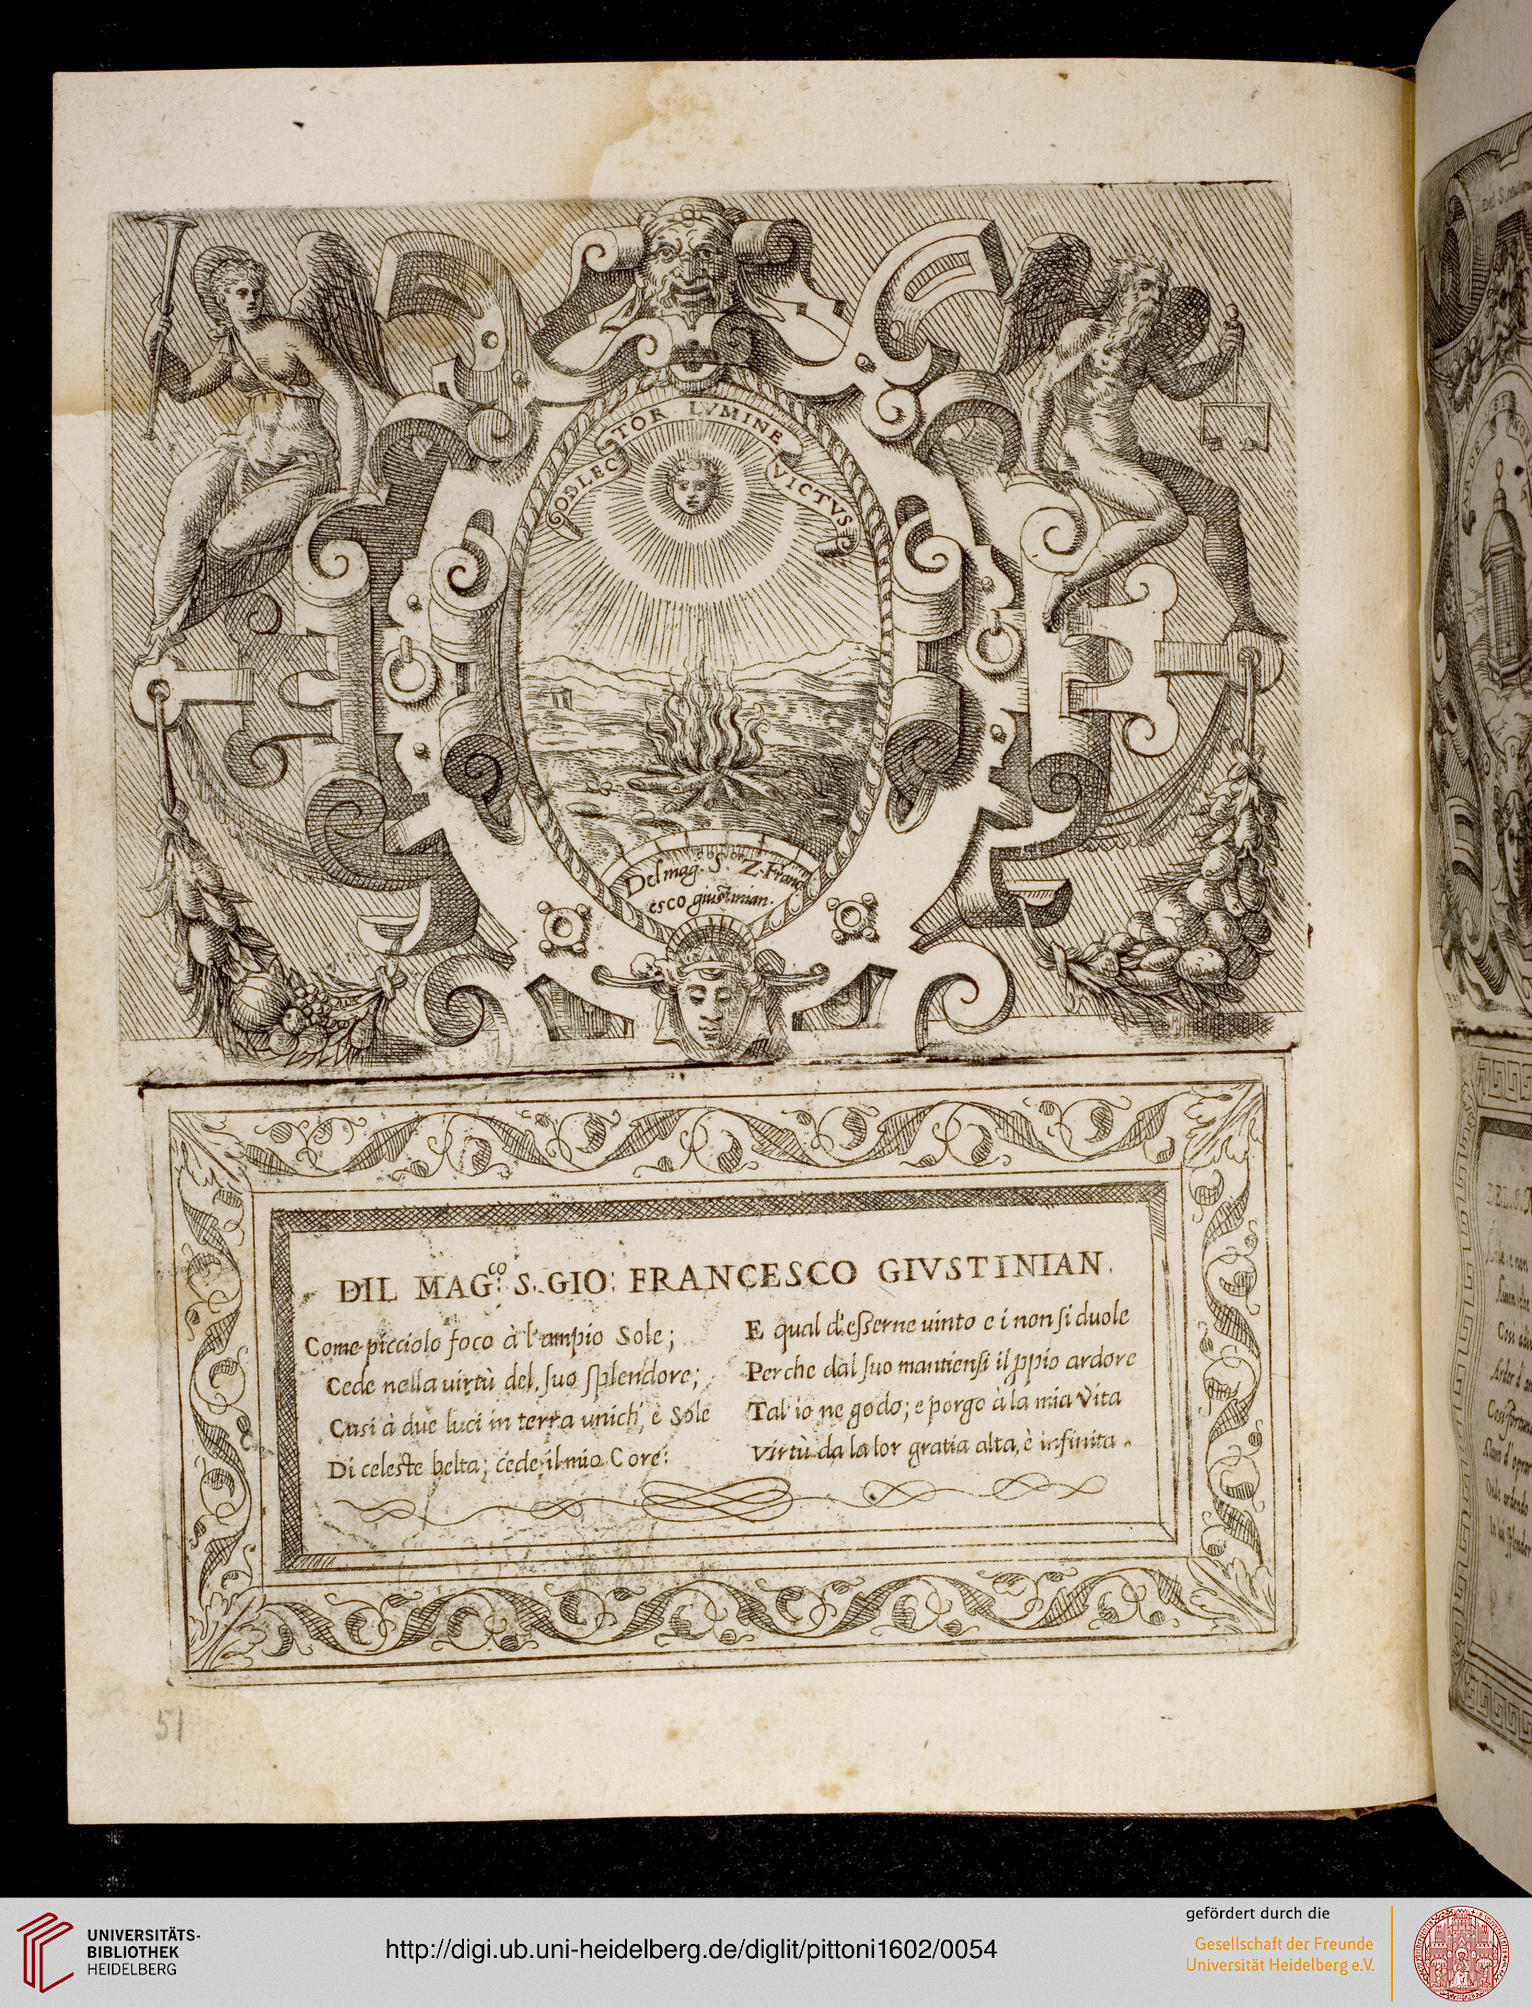 OBLEC TOR LVMINE VICTVS
Del mag. S. Z. Franc
esco giustinian.
DIL MAG:co S. GIO: FRANCESCO GIVSTINIAN.
Come picciolo foco à l'ampio Sole;
Cede nella uirtù del suo splendore;
Cusi à due luci in terra unich', è Sole
Di celeste belta; cede il mio Core:
E qual d'esserne uinto e i non si duole
Perche dal suo mantiensi il ppio ardore
Tal io ne godo; e porgo à la mia Vita
Virtù da la lor gratia alta, è infinita.
51
UNIVERSITÄTS-
BIBLIOTHEK
HEIDELBERG
http://digi.ub.uni-heidelberg.de/diglit/pittoni1602/0054
gefördert durch die
Gesellschaft der Freunde
Universität Heidelberg e.V.